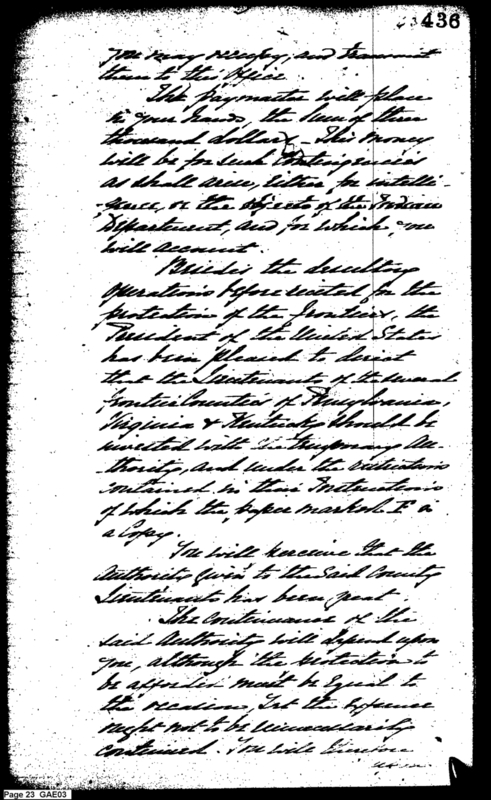 23436
you may occupy, and transmit
them to this Office.
The paymaster will place
in your hands, the sum of three
thousand dollars. This money
will be for such Contingencies
as shall arise, either for intelli-
-gence, or the objects of the Indian
Department, and for which you
will account.
Besides the desultory
operations before recited, for the
protection of the frontiers, the
President of the United States
has been pleased to direct
that the Lieutenants of the several
frontier Counties of Pennsylvania,
Virginia & Kentucky should be
invested with the temporary Au-
thority, and under the restrictions
contained in their Instructions
of which the paper marked F is
a Copy.
You will perceive that the
Authority given to the said County
Lieutenants has been great.
The Continuance of the
said Authority will depend upon
you, although the protection to
be afforded must be equal to
the occasion, Yet the expense
ought not to be unnecessarily
continued. You will therefore
Page 23 GAE03